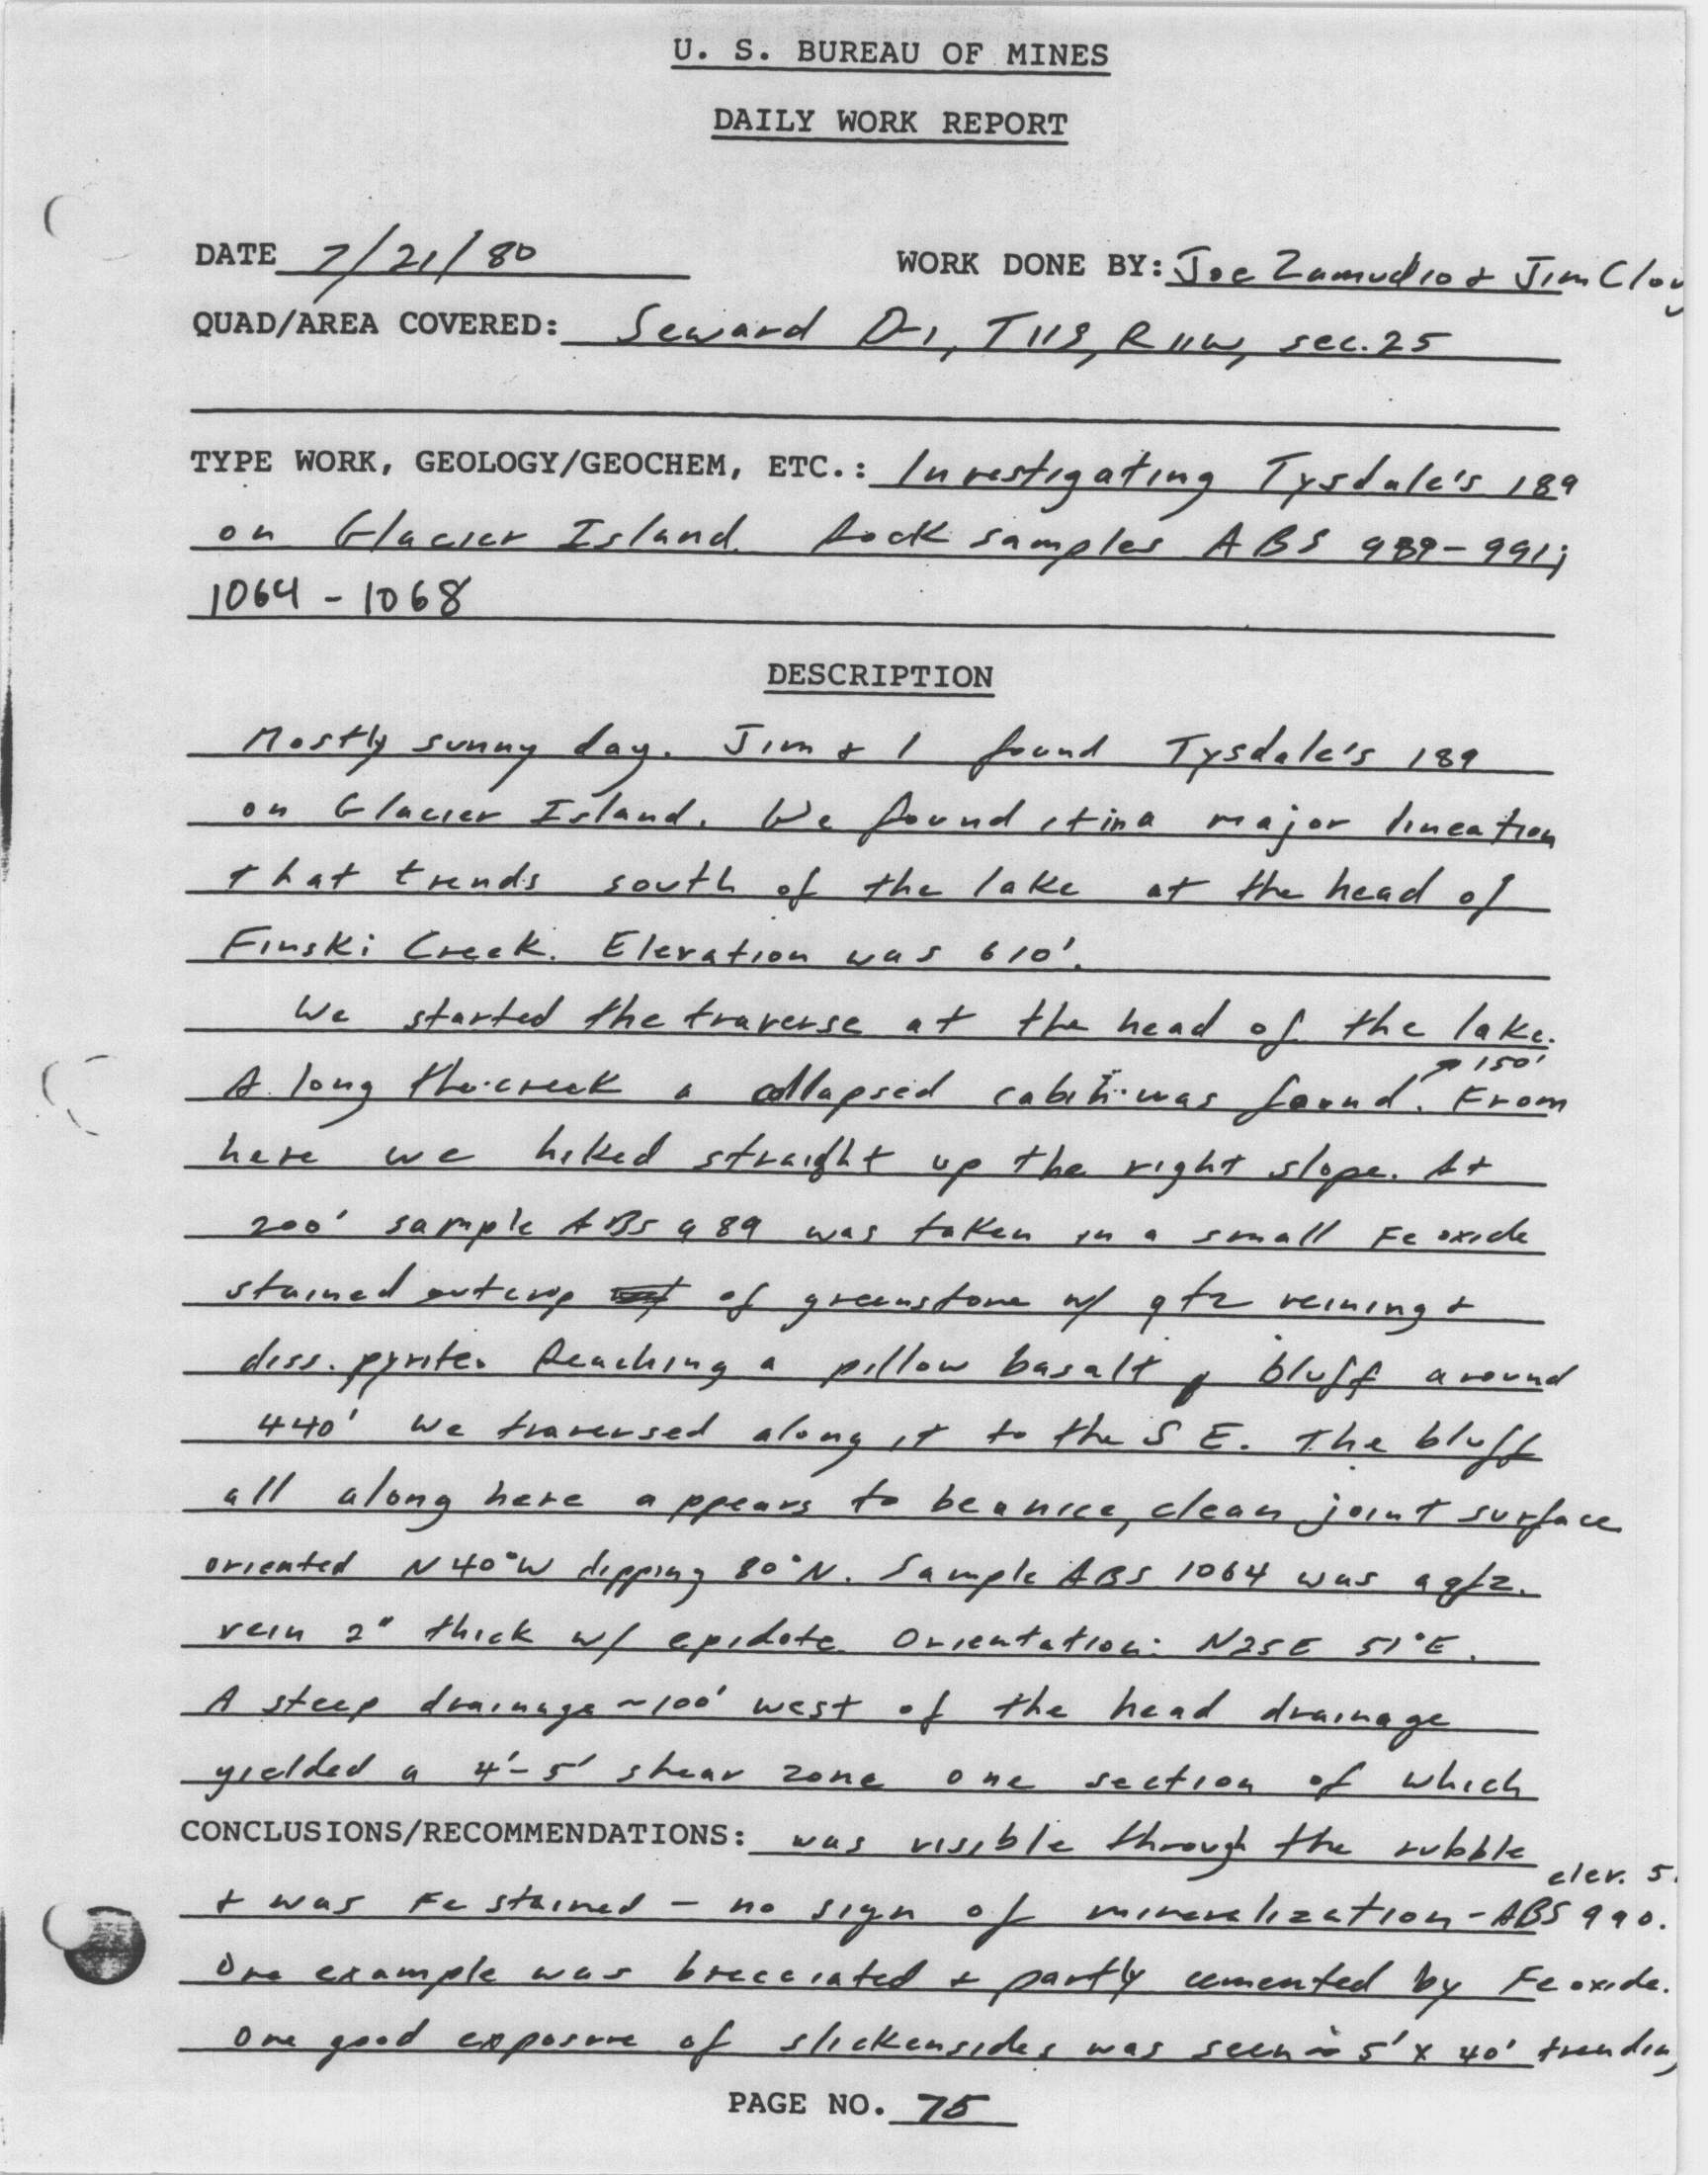 U. S. BUREAU OF MINES
DAILY WORK REPORT
DATE 7/21/80 WORK DONE BY: Joe Zamudio & Jim Clou
QUAD/AREA COVERED: Seward D-1, T11S, R11W, sec. 25
TYPE WORK, GEOLOGY/GEOCHEM, ETC.: Investigating Tysdale's 189
on Glacier Island. Rock samples ABS 989-991;
1064 - 1068
DESCRIPTION
Mostly sunny day. Jim & I found Tysdale's 189
on Glacier Island. We found it in a major lineation
that trends south of the lake at the head of
Finski Creek. Elevation was 610'.
We started the traverse at the head of the lake.
150'
Along the creek a collapsed cabin was found. From
here we hiked straight up the right slope. At
200' sample ABS 989 was taken in a small Fe oxide
stained outcrop of greenstone w/ qtz veining &
diss. pyrite. Reaching a pillow basalt bluff around
440' we traversed along it to the SE. The bluff
all along here appears to be a nice, clean joint surface
oriented N40°W dipping 80°N. Sample ABS 1064 was a qtz.
vein 2" thick w/ epidote. Orientation: N25E 51°E.
A steep drainage ~100' west of the head drainage
yielded a 4'-5' shear zone one section of which
CONCLUSIONS/RECOMMENDATIONS: was visible through the rubble
elev. 5
& was Fe stained - no sign of mineralization - ABS 990.
One example was brecciated & partly cemented by Fe oxide.
One good exposure of slickensides was seen ~ 5' x 40' trending
PAGE NO. 75